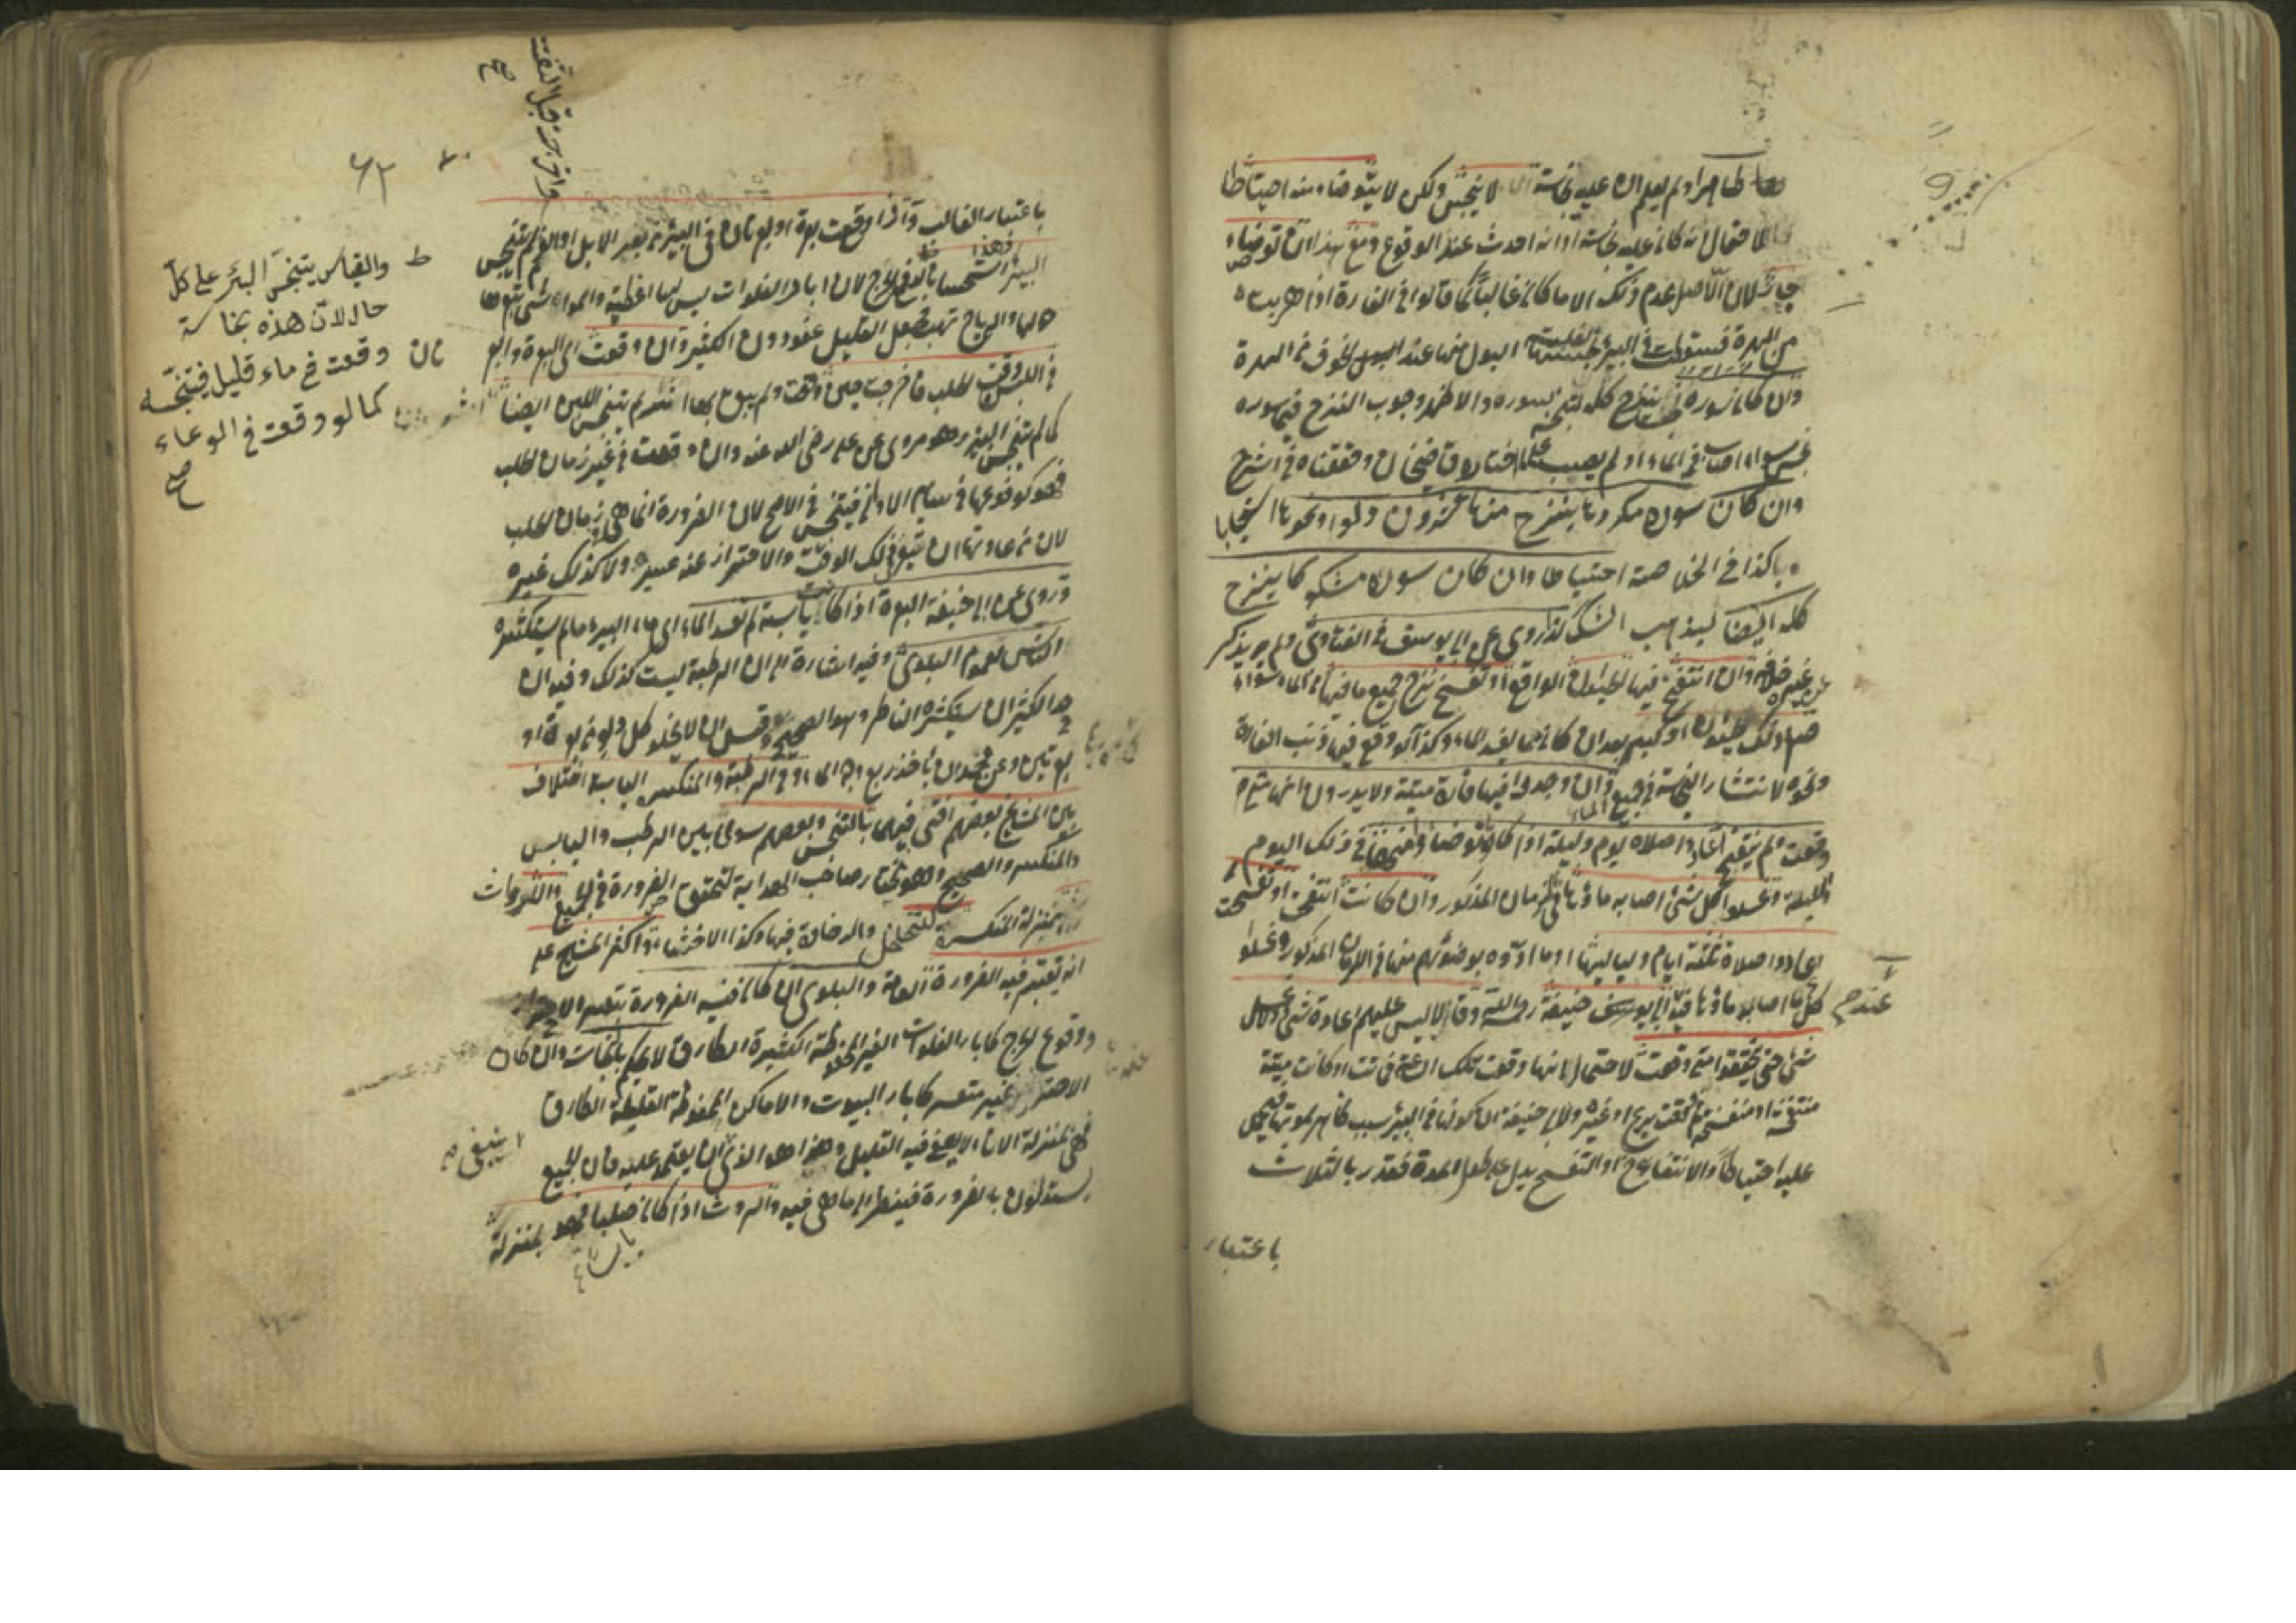 طاهرا ولم يعلم ان عليه نجاسة لا ينجس ولكن لا يتوضاء منه احتياطا
لاحتمال انه كان عليه نجاسة او انه احدث عند الوقوع ومع هذا ان توضاء
جاز لان الاصل عدم ذلك الا ما كان غالبا كما قالوا في الفارة اذا هربت
من الهرة فسقطت في البير البول منها عند الخوف من الهرة
وان كان سوره نجسا ينزح كله لتنجسه بسوره والاظهر وجوب النزح فيما سوره
نجس سواء اصاب فمه الماء او لم يصب كما اختاره قاضيخان وحققناه في الشرح
وان كان سوره مكروها ينزح منها عشرون دلوا ونحوها استحبابا
كذا في الخلاصة احتياطا وان كان سوره مشكوكا ينزح
كله ايضا ليذهب الشك كذا روى عن ابي يوسف في الفتاوى ولم يذكر
عن غيره خلافه وان انتفخ فيها الحيوان الواقع او تفسخ نزح جميع ما فيها من الماء سواء
صغر ذلك الحيوان او كبر بعد ان كان مما يفسد الماء وكذا لو وقع فيها ذنب الفارة
ونحوه لانتشار النجاسة في جميع الماء وان وجدوا فيها فارة ميتة ولا يدرون انها متى
وقعت ولم ينتفخ اعادوا صلاة يوم وليلة اذا كانوا توضاوا منها في ذلك اليوم
والليلة وغسلوا كل شئ اصابه ماؤها في الزمان المذكور وان كانت انتفخت او تفسخت
اعادوا صلاة ثلثة ايام ولياليها وما ادوه بوضوئهم منها في الزمان المذكور وغسلوا
كل ما اصابه ماؤها عند ابي حنيفة رحمه الله وقالا ليس عليهم اعادة شئ ولا غسل
عندهم
شئ حتى يتحققوا متى وقعت لاحتمال انها وقعت تلك الساعة فماتت او كانت ميتة
منتفخة او متفسخة فالقت بريح او غيره ولابي حنيفة ان كونها في البير سبب ظاهر لموتها فيحمل
عليه احتياطا والانتفاخ او التفسخ يدل على طول المدة فقدر بالثلاث
باعتبار
٦٢
باعتبار الغالب واذا وقعت بعرة او بعرتان في البير من بعر الابل او الغنم لم يتنجس
البير استحسانا لان ابار الفلوات ليس لها اغطية والمواشي تبعر
حولها والرياح تهب فجعل القليل عفوا دون الكثير وان وقعت اي البعرة والبعرتان
في اللبن وقت الحلب فاخرجت حين وقعت ولم يبق لها اثر لم يتنجس اللبن ايضا
كما لم يتنجس البير وهو مروى عن علي رضى الله عنه وان وقعت في غير زمان الحلب
فهو كوقوعها في سائر الاواني فيتنجس في الاصح لان الضرورة انما هي زمان الحلب
لان من عادتها ان تبعر في ذلك الوقت والاحتراز عنه عسير ولا كذلك غيره
وروى عن ابي حنيفة البعرة اذا كانت يابسة لم تفسد الماء اي ماء البير ما لم يستكثره
الناس لعموم البلوى وفيه اشارة الى ان الرطبة ليست كذلك وفيه ان
حد الكثير ان يستكثره الناظر وهو الصحيح وقيل ان لا يخلو كل دلو من بعرة او
بعرتين وعن محمد ان ياخذ ربع وجه الماء وفي الرطبة والمنكسر اليابسة اختلاف
بين المشايخ بعضهم افتى فيهما بالتنجس وبعضهم سووا بين الرطب واليابس
والمنكسر والصحيح وهو مختار صاحب الهداية لتحقق الضرورة في الجميع والروث
بمنزلة المنكسرة للتخلخل والرخاوة فيها وكذا الاخثاء واكثر المشايخ على
انه تعتبر فيه الضرورة العامة والبلوى ان كان فيه الضرورة بتعسر الاحتراز
ووقوع الحرج كابار الفلوات الغير المحوطة الكثيرة الطارق لا يحكم بالنجاسة وان كان
الاحتراز غير متعسر كابار البيوت والاماكن المحفوظة القليلة الطارق
فهي بمنزلة الاناء لا يعفى فيه القليل وهذا هو الذي ان يعتمد عليه فان الجميع
ينبغي صح
يستدلون بالضرورة فينظر الى ما هي فيه والروث اذا كان صلبا فهو بمنزلة
ط والقياس يتنجس البئر على كل
حال لان هذه نجاسة
وقعت في ماء قليل فيتنجسه
كما لو وقعت في الوعاء
صح